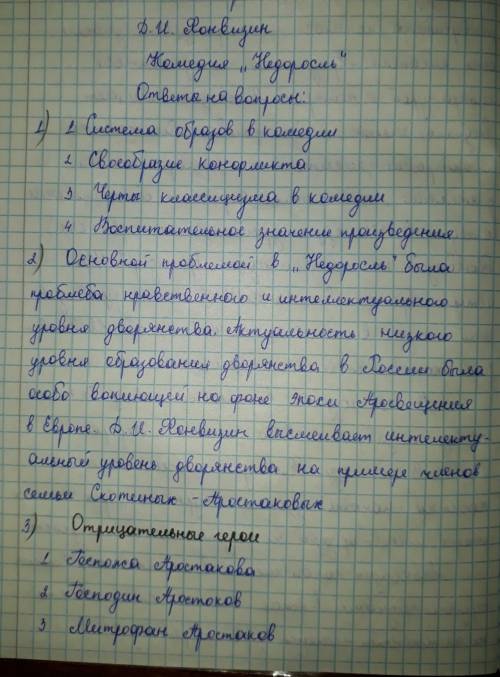 Д.И. Фонвизин
Комедия „Недоросль"
Ответы на вопросы:
1) 1 Система образов в комедии
2 Своеобразие конфликта
3 Черты классицизма в комедии
4 Воспитательное значение произведения
2) Основной проблемой в „Недоросль" была
проблеба нравственного и интеллектуального
уровня дворянства. Актуальность низкого
уровня образования дворянства в России была
особо вопиющей на фоне эпохи Просвещения
в Европе. Д.И. Фонвизин высмеивает интелекту-
альный уровень дворянства на примере членов
семьи Скотиных - Простаковых
3) Отрицательные герои
1 Госпожа Простакова
2 Господин Простоков
3 Митрофан Простаков